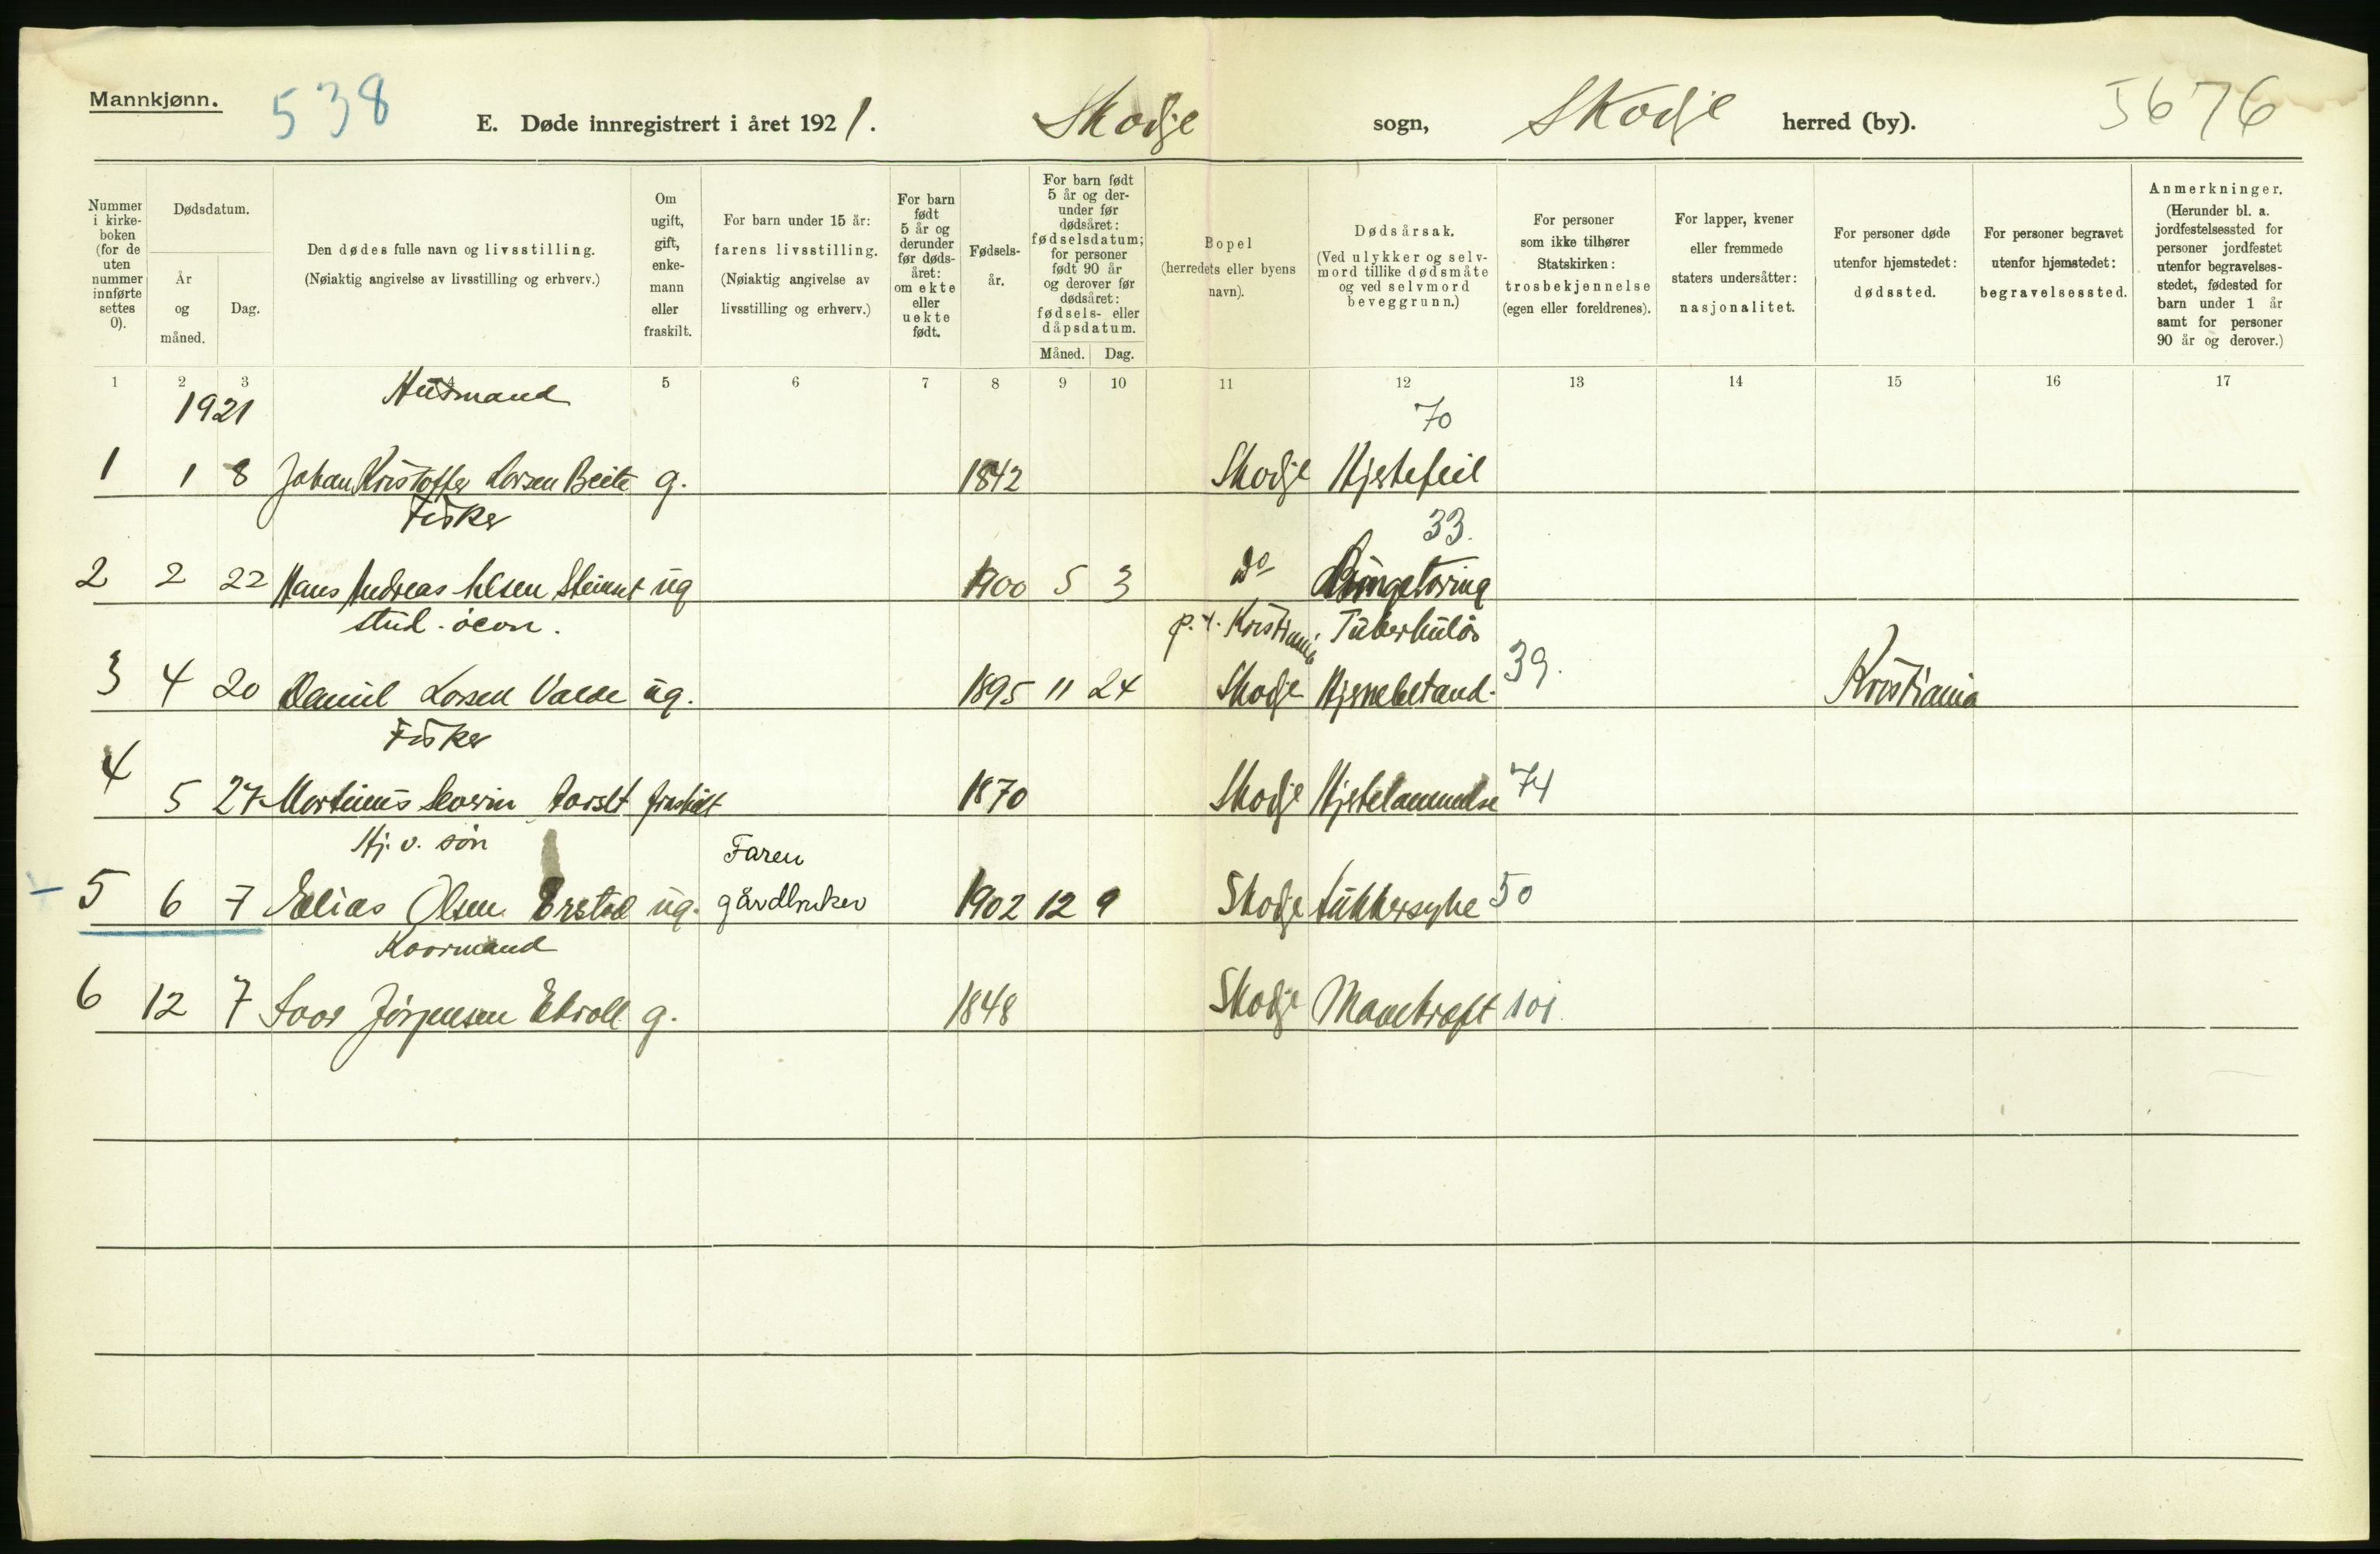 Mannkjønn.
538
E. Døde innregistrert i året 1921.
Skodje sogn, Skodje herred (by).
5676
Nummer i kirkeboken (for de uten nummer innførte settes 0).
Dødsdatum.
År og måned.
Dag.
Den dødes fulle navn og livsstilling.
(Nøiaktig angivelse av livsstilling og erhverv.)
Om ugift, gift, enkemann eller fraskilt.
For barn under 15 år: farens livsstilling.
(Nøiaktig angivelse av livsstilling og erhverv.)
For barn født 5 år og derunder før dødsåret: om ekte eller uekte født.
Fødselsår.
For barn født 5 år og derunder før dødsåret: fødselsdatum; for personer født 90 år og derover før dødsåret: fødsels- eller dåpsdatum.
Måned. Dag.
Bopel
(herredets eller byens navn).
Dødsårsak.
(Ved ulykker og selvmord tillike dødsmåte og ved selvmord beveggrunn.)
For personer som ikke tilhører Statskirken: trosbekjennelse (egen eller foreldrenes).
For lapper, kvener eller fremmede staters undersåtter: nasjonalitet.
For personer døde utenfor hjemstedet: dødssted.
For personer begravet utenfor hjemstedet: begravelsessted.
Anmerkninger.
(Herunder bl. a. jordfestelsessted for personer jordfestet utenfor begravelsesstedet, fødested for barn under 1 år samt for personer 90 år og derover.)
1 2 3 5 6 7 8 9 10 11 12 13 14 15 16 17
1921
Husmand
70
1 1 8 Johan Kristoffer Larsen Beite g. 1842 Skodje Hjertefeil
Fisker
33.
2 2 22 Hans Andreas Steinset ug 1900 5 3 do
stud. øcon. p.t. Kristiania Tuberkulös
3 4 20 Daniel Larsen Valde ug. 1895 11 24 Skodje 39. Kristiania
Fisker
4 5 27 Martinus Severin fraskilt 1870 Skodje Hjertelammelse 74
Hj. v. søn Faren
5 6 7 Elias Olsen ug. gårdbruker 1902 12 9 Skodje Sukkersyke 50
Kaarmand
6 12 7 Jørgensen Ekroll g. 1848 Skodje Mavekræft 101.